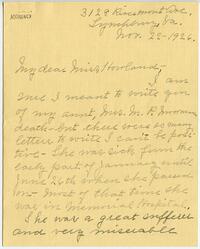 3128 Rivermont Ave.
Lynchburg, Va.
Nov. 29-1926.
My dear Miss Howland,-
I am
sure I meant to write you
of my aunt, Mrs. M. P.
death- but there were so many
letters to write I can't be posi-
tive- She was sick from the
early part of January until
June 26th when she passed
on- Most of that time she
was in Memorial Hospital.
She was a great sufferer
and very miserable